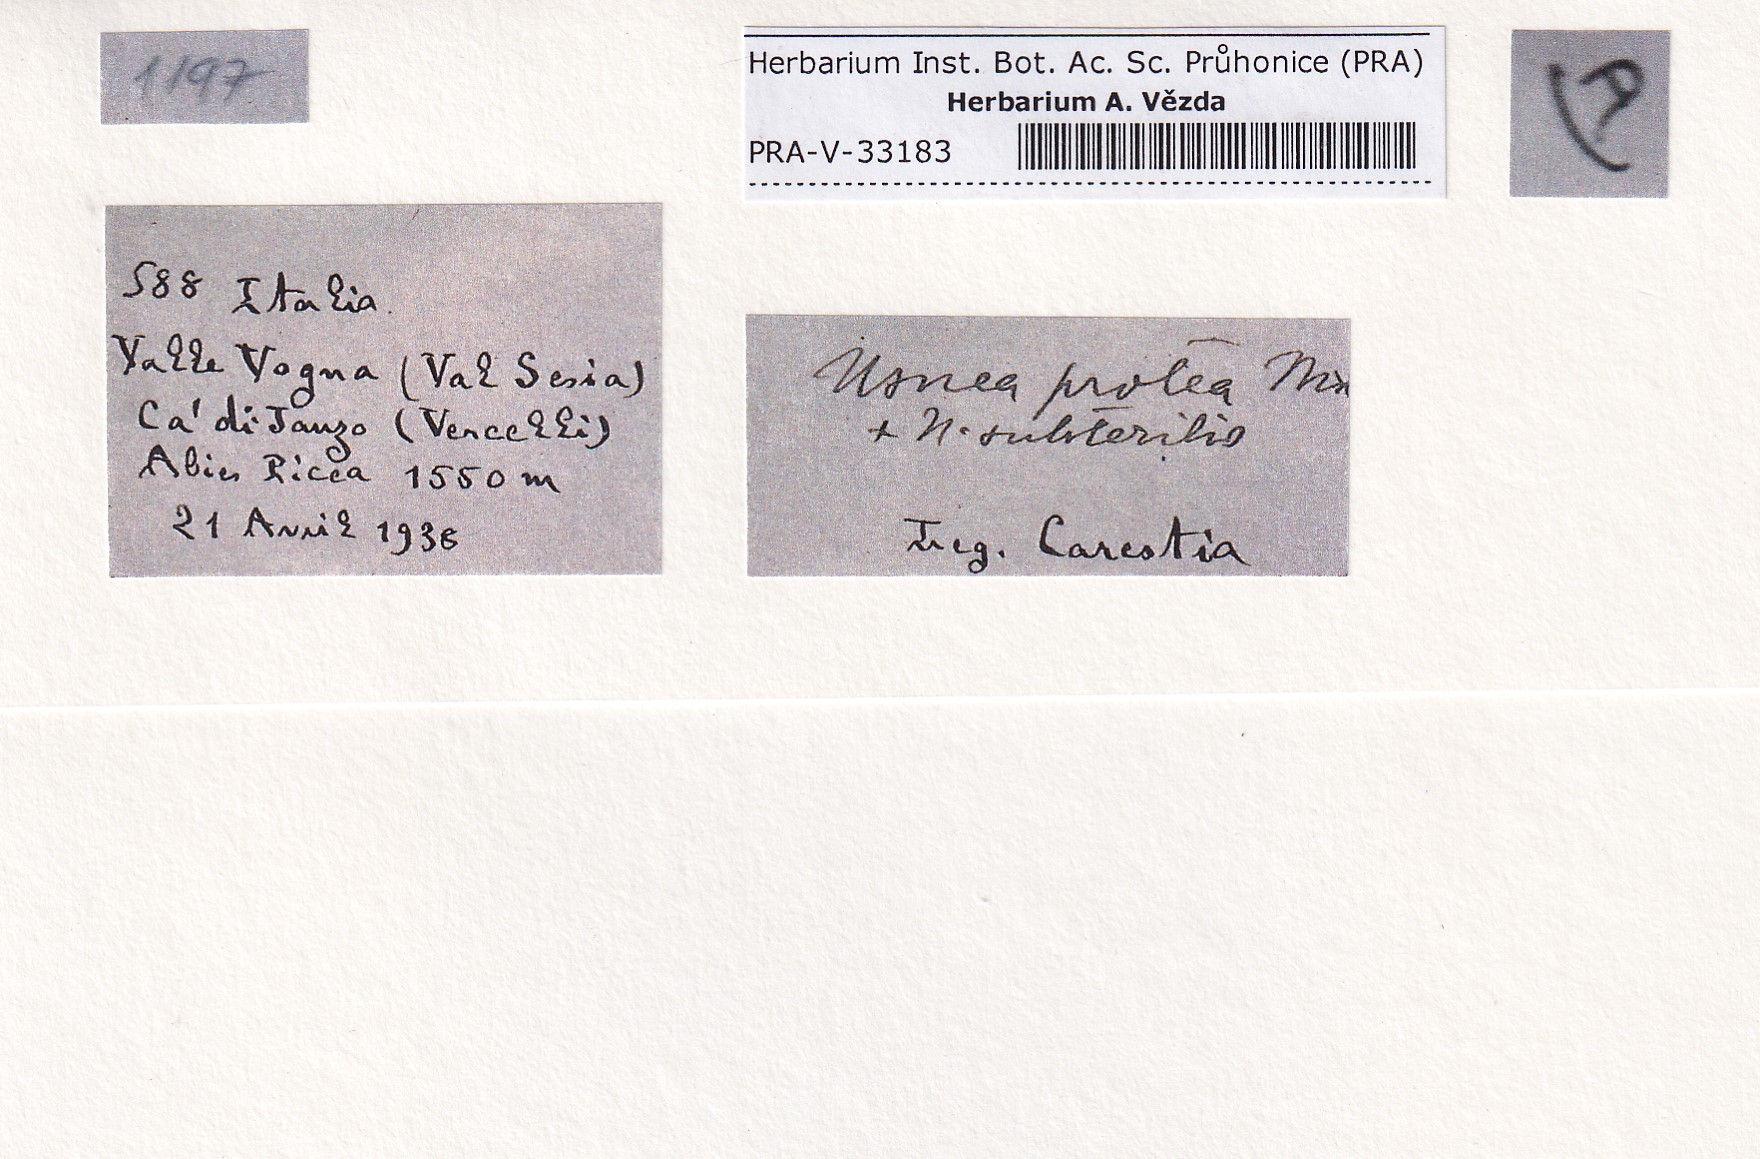 1197
Herbarium Inst. Bot. Ac. Sc. Průhonice (PRA)
Herbarium A. Vězda
PRA-V-33183
588 Italia.
Valle Vogna (Val Sesia)
Ca' di Janzo (Vercelli)
Abies Picea 1550 m
21 Avril 1936
Usnea protea
+ U. substerilis
Carestia